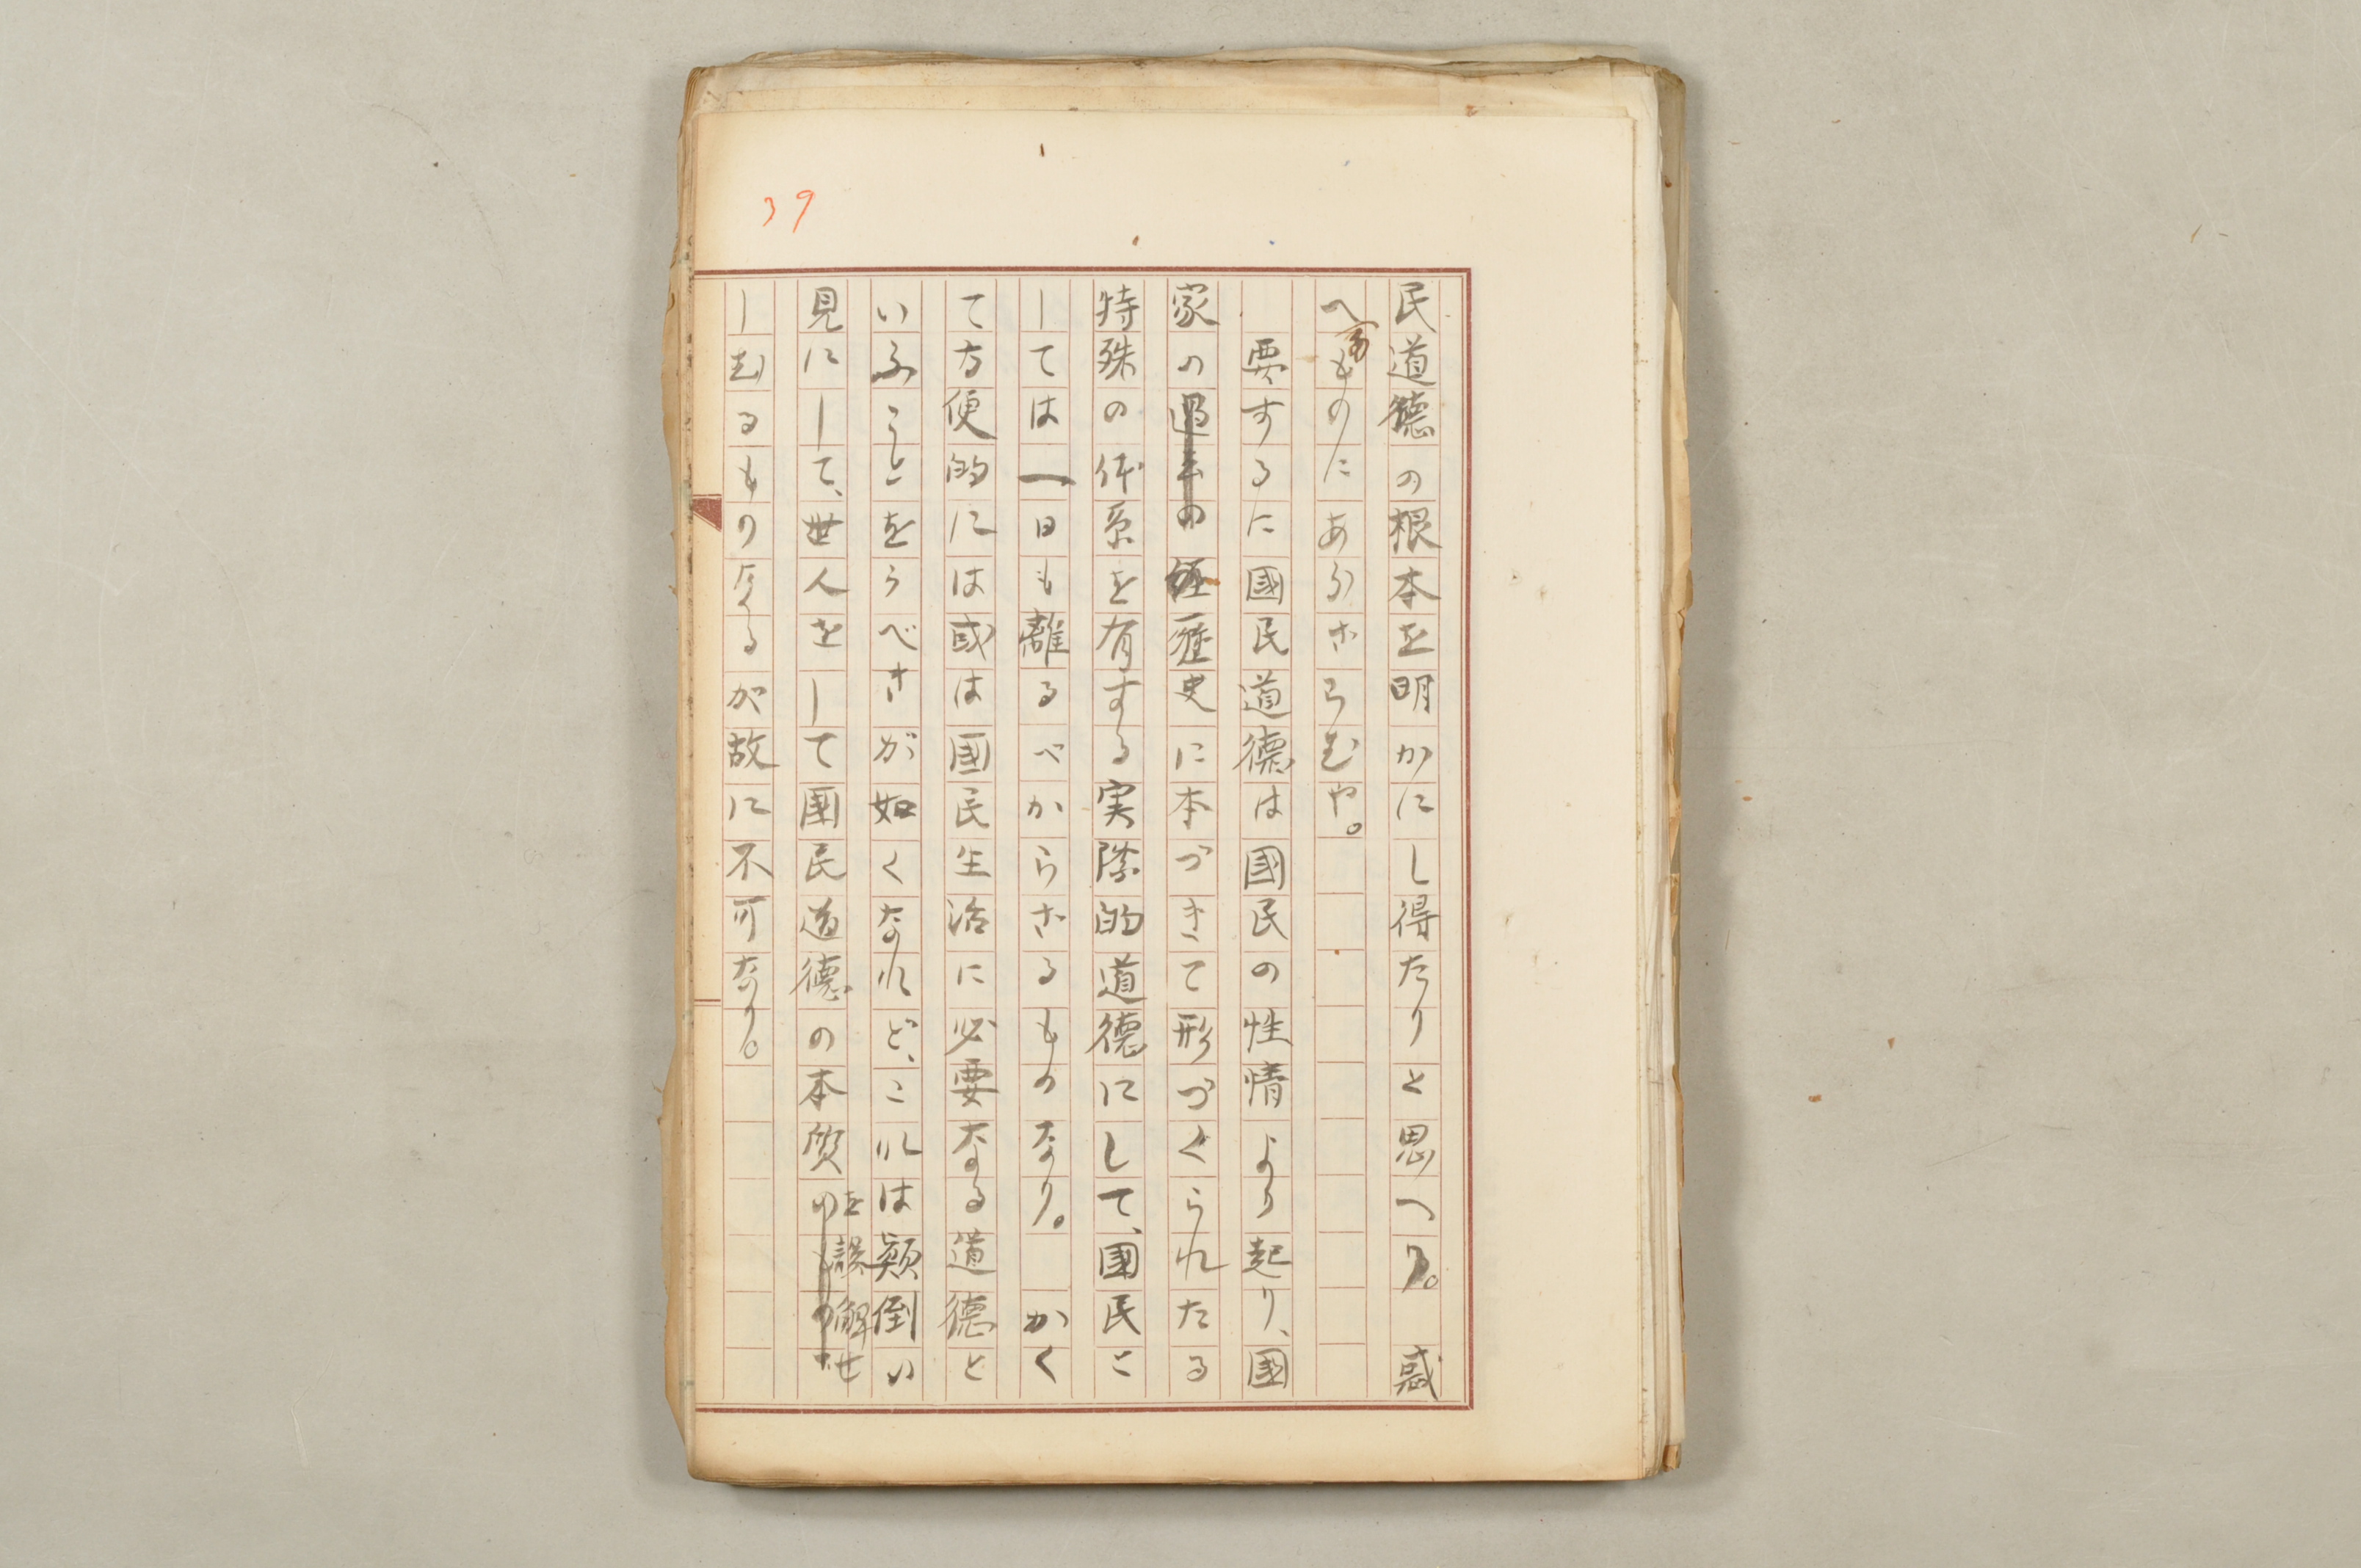 39
民道徳の根本を明かにし得たりと思へり。 惑
へるものにあらざらむや。
要するに國民道徳は國民の性情より起り、國
家の歴史に本づきて形づくられたる
特殊の体系を有する実際的道徳にして、國民と
しては一日も離るべからざるものなり。 かく
て方便的には或は國民生活に必要なる道徳と
いふことをうべきが如くなれど、これは顛倒い
見にして、世人をして國民道徳の本質を誤解せ
しむるものなるが故に不可なり。